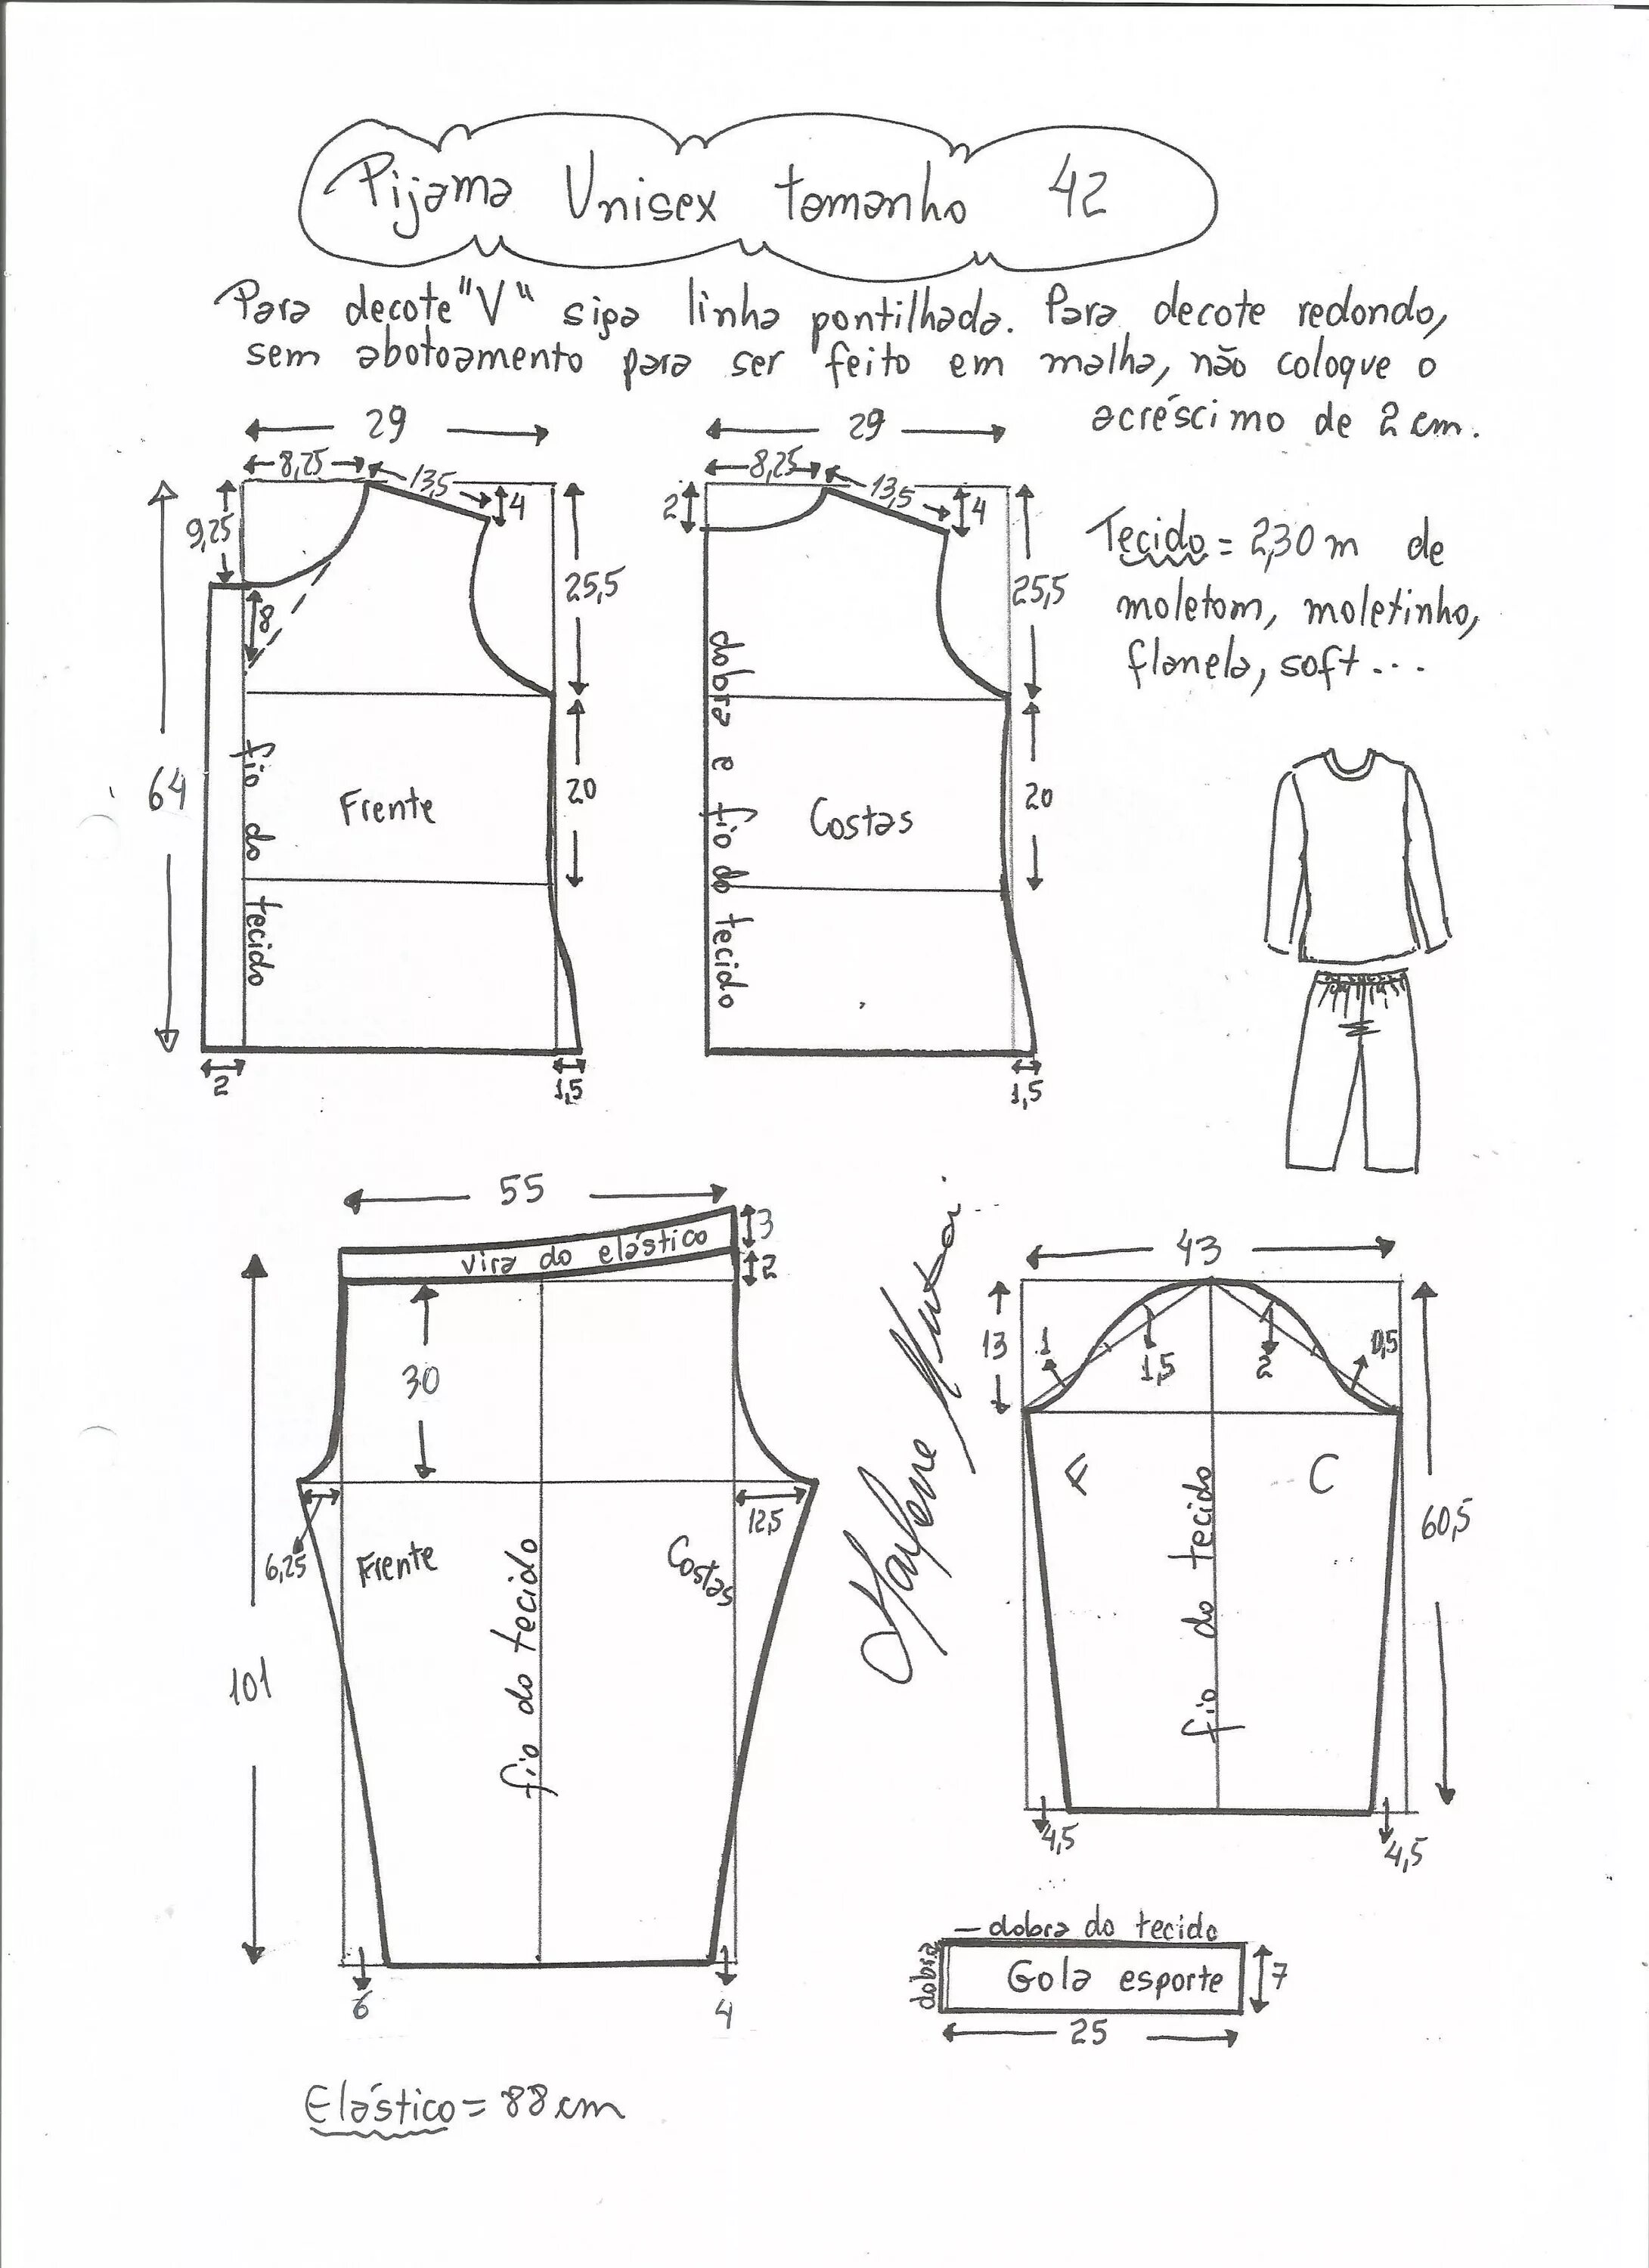 Pijama Unisex tamanho 42
Para decote "V" siga linha pontilhada. Para decote redondo,
sem abotoamento para ser feito em malha, não coloque o
acréscimo de 2 cm.
29
8,25
13,5
4
9,25
8
25,5
64
20
fio do tecido
Frente
2
1,5
29
8,25
13,5
4
2
25,5
20
dobra e fio do tecido
Costas
1,5
Tecido = 2,30 m de
moletom, moletinho,
flanela, soft...
55
vira do elástico
3
2
30
101
6,25
12,5
Frente
Costas
fio do tecido
6
4
Elástico = 88 cm
43
13
1
1,5
2
0,5
F
C
fio do tecido
60,5
4,5
4,5
dobra do tecido
dobra
Gola esporte
7
25